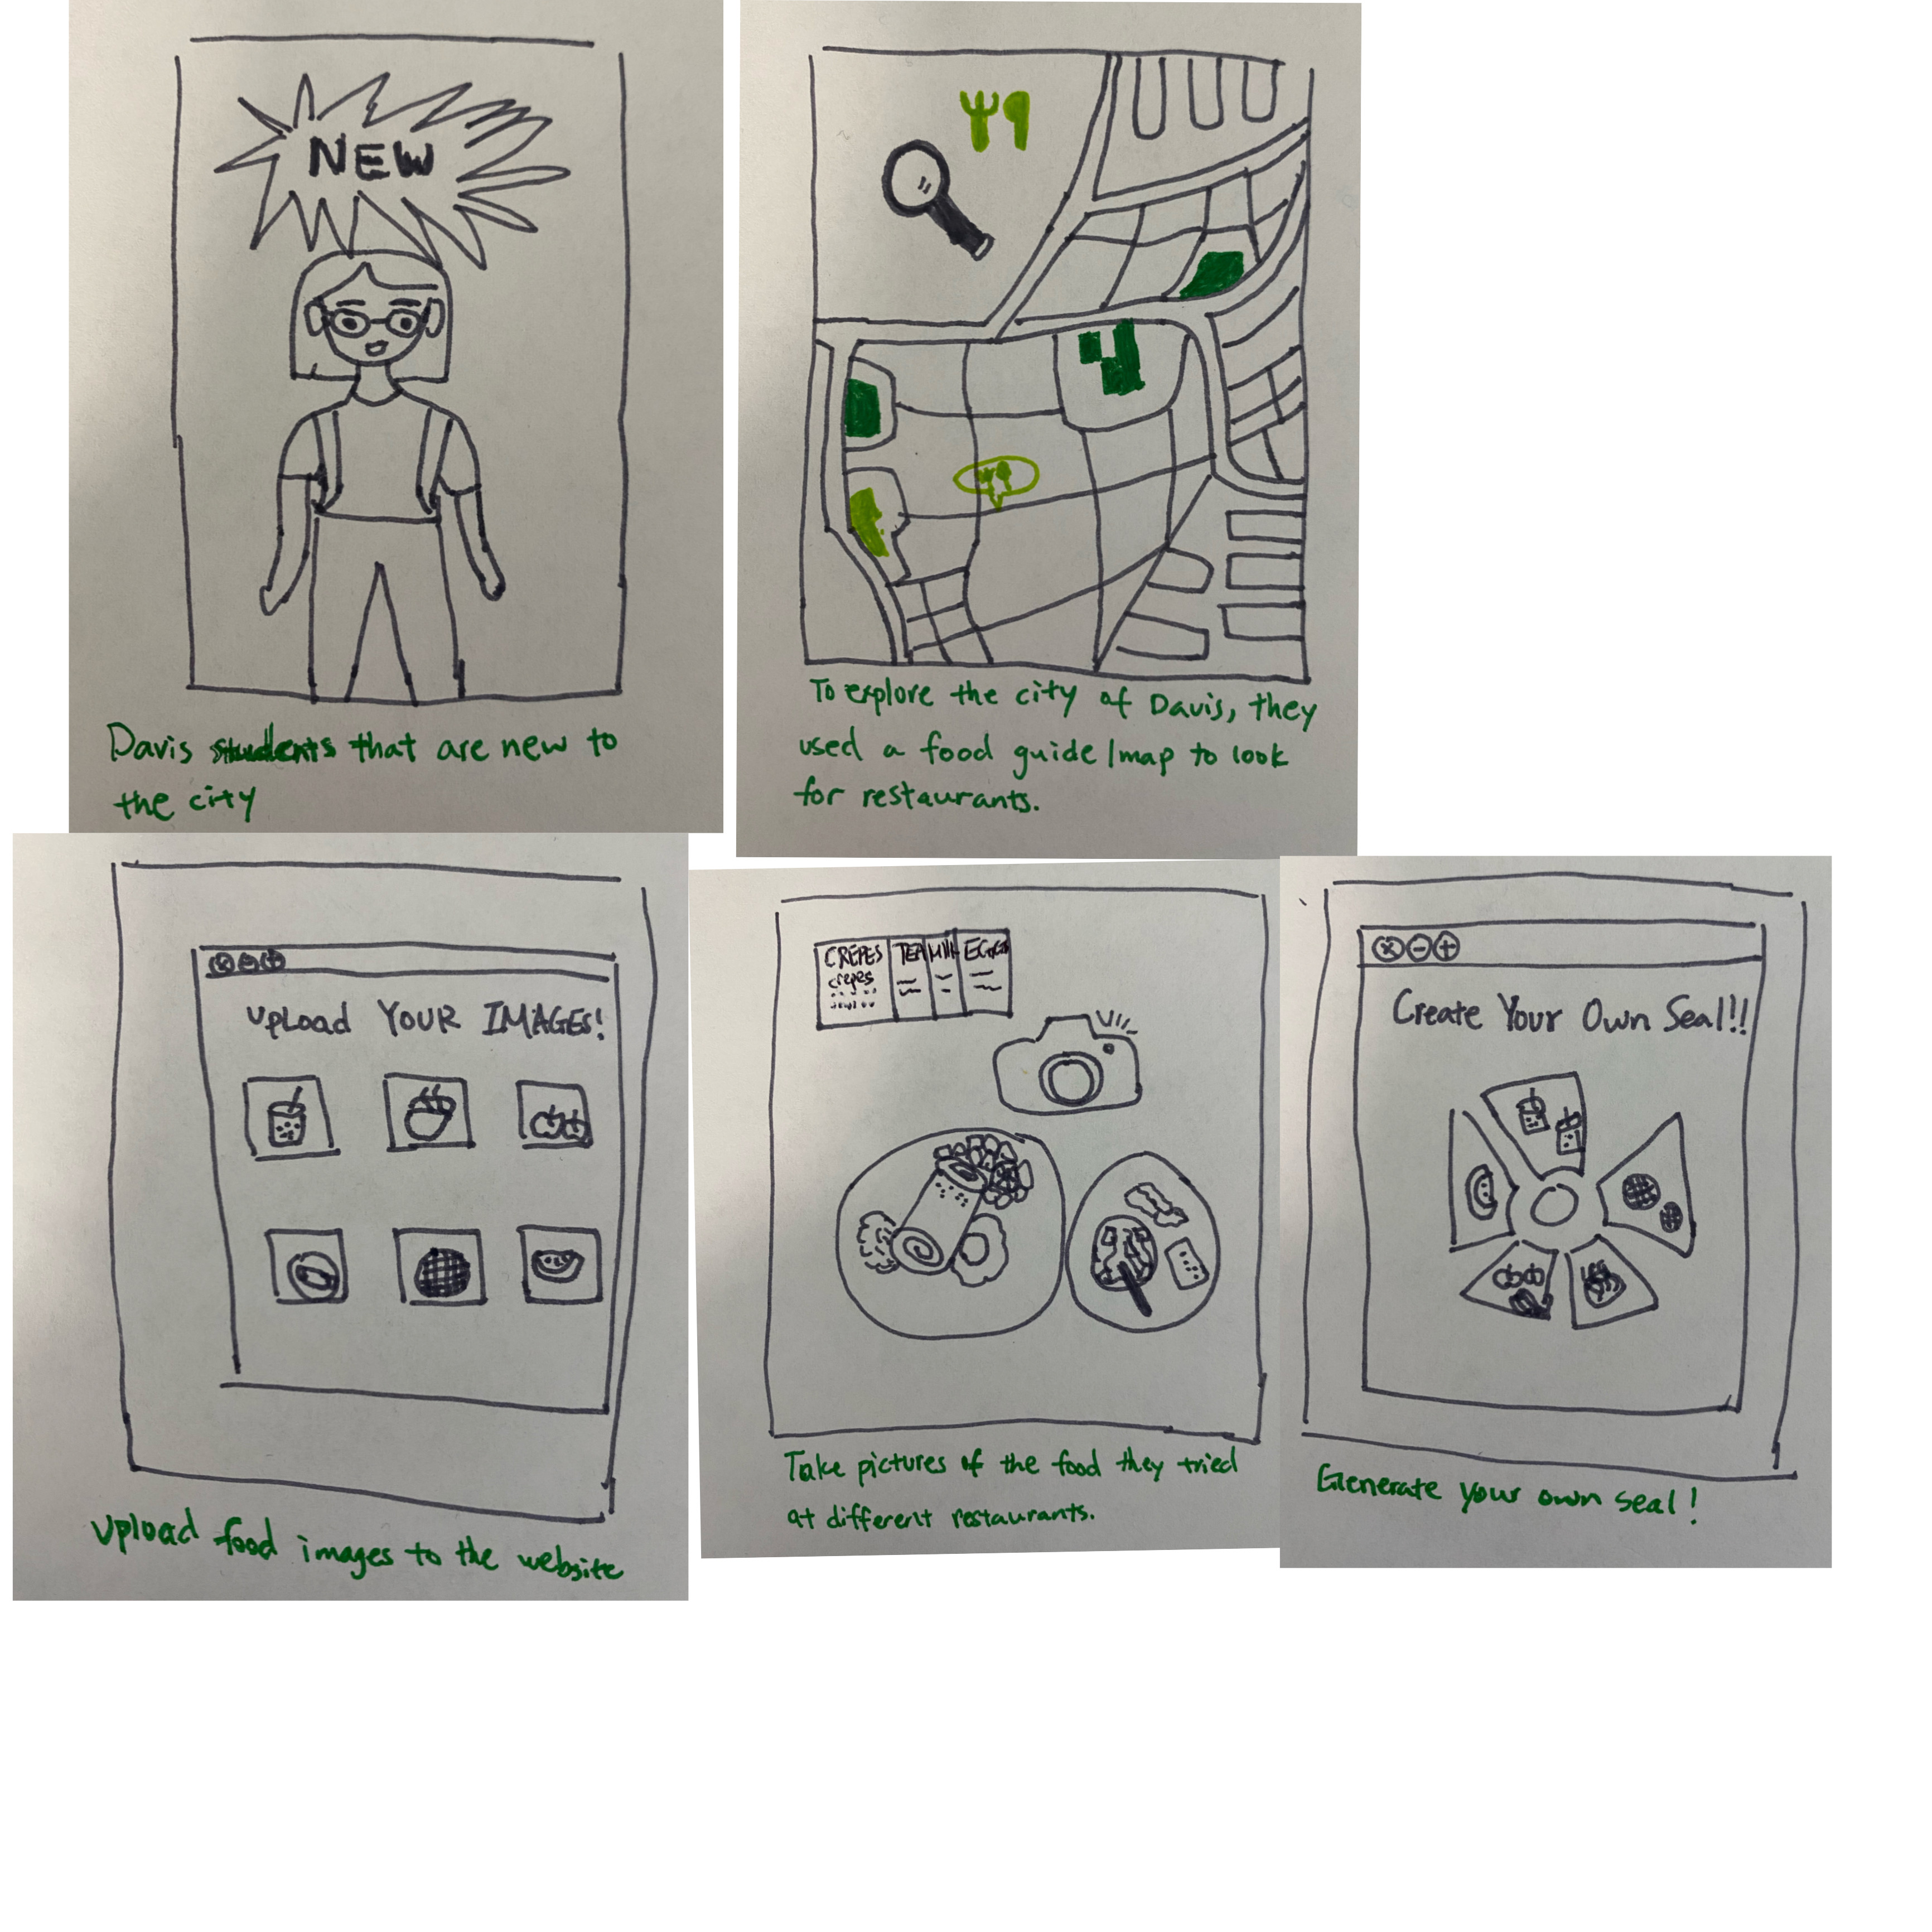 NEW
Davis students that are new to
the city
To explore the city of Davis, they
used a food guide/map to look
for restaurants.
UPLOAD YOUR IMAGES!
Upload food images to the website
CREPES
crepes
TEA
Take pictures of the food they tried
at different restaurants.
Create Your Own Seal!!
Generate your own seal!